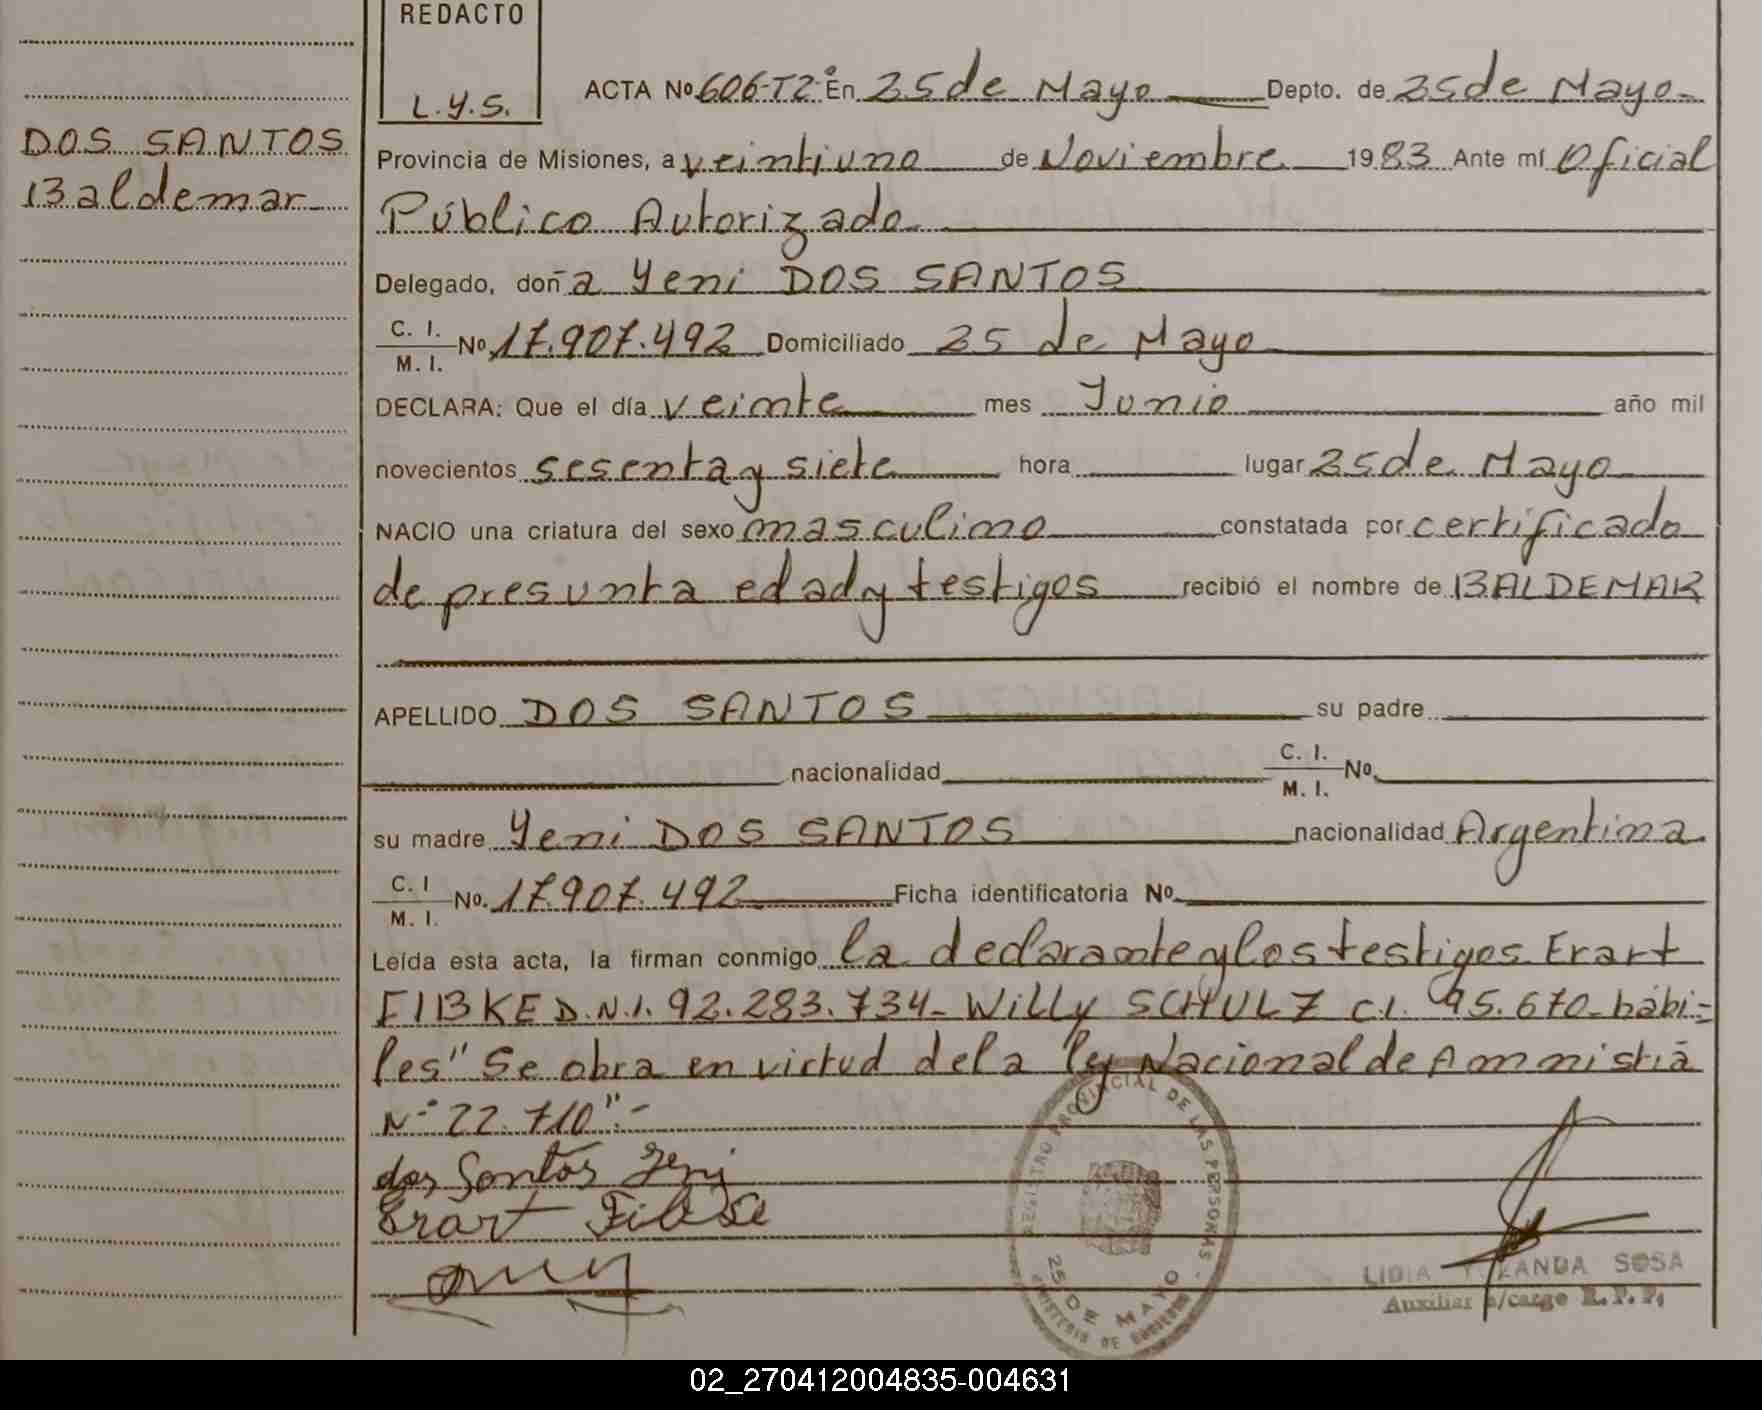 REDACTO
L.Y.S.
DOS SANTOS
Baldemar
ACTA Nº 606-T2º En 25 de Mayo Depto. de 25 de Mayo-
Provincia de Misiones, a veintiuno de Noviembre 1983 Ante mí Oficial
Público Autorizado
Delegado, doña Yeni DOS SANTOS
C. I.
M. I. Nº 17.907.492 Domiciliado 25 de Mayo
DECLARA: Que el día veinte mes Junio año mil
novecientos sesenta y siete hora lugar 25 de Mayo
NACIO una criatura del sexo masculino constatada por certificado
de presunta edad y testigos recibió el nombre de BALDEMAR
APELLIDO DOS SANTOS su padre
nacionalidad C. I.
M. I. Nº
su madre Yeni DOS SANTOS nacionalidad Argentina
C. I
M. I. Nº. 17.907.492 Ficha identificatoria Nº
Leída esta acta, la firman conmigo la declarante y los testigos Erart
FIBKE D.N.I. 92.283.734- Willy SCHULZ C.I. 95.670- hábi=
les" Se obra en virtud de la ley Nacional de Amnistia
Nº 22.710".-
dos Santos Yeni
Erart Fibke
REGISTRO PROVINCIAL DE LAS PERSONAS
25 DE MAYO
MINISTERIO DE GOBIERNO
LIDIA SOSA
Auxiliar a/cargo R.P.P.
02_270412004835-004631